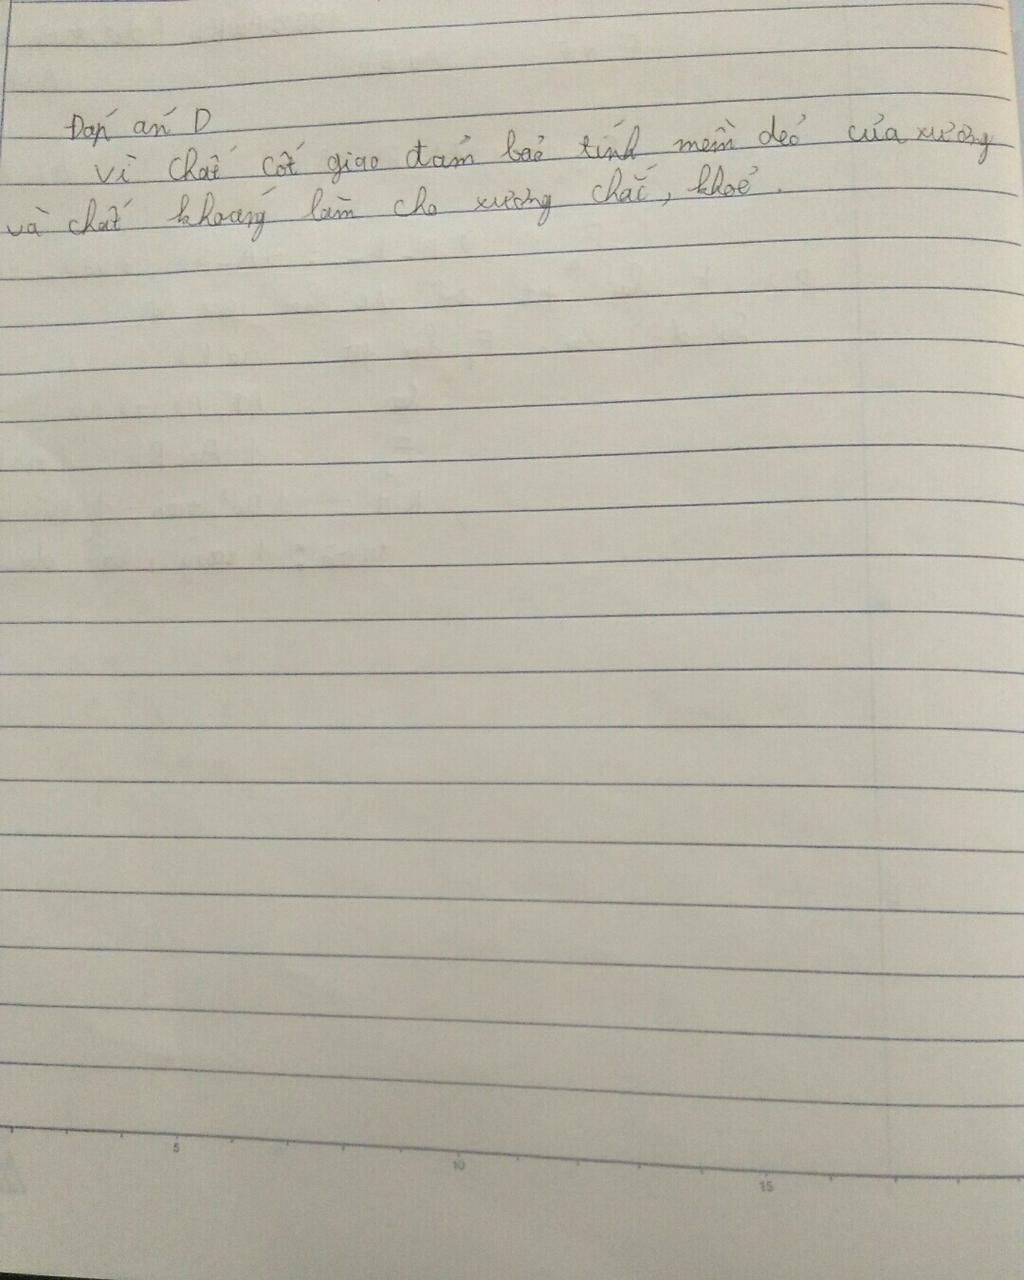 Đáp án D
vì chất cốt giao đảm bảo tính mềm dẻo của xương
và chất khoáng làm cho xương chắc, khoẻ.
5 10 15